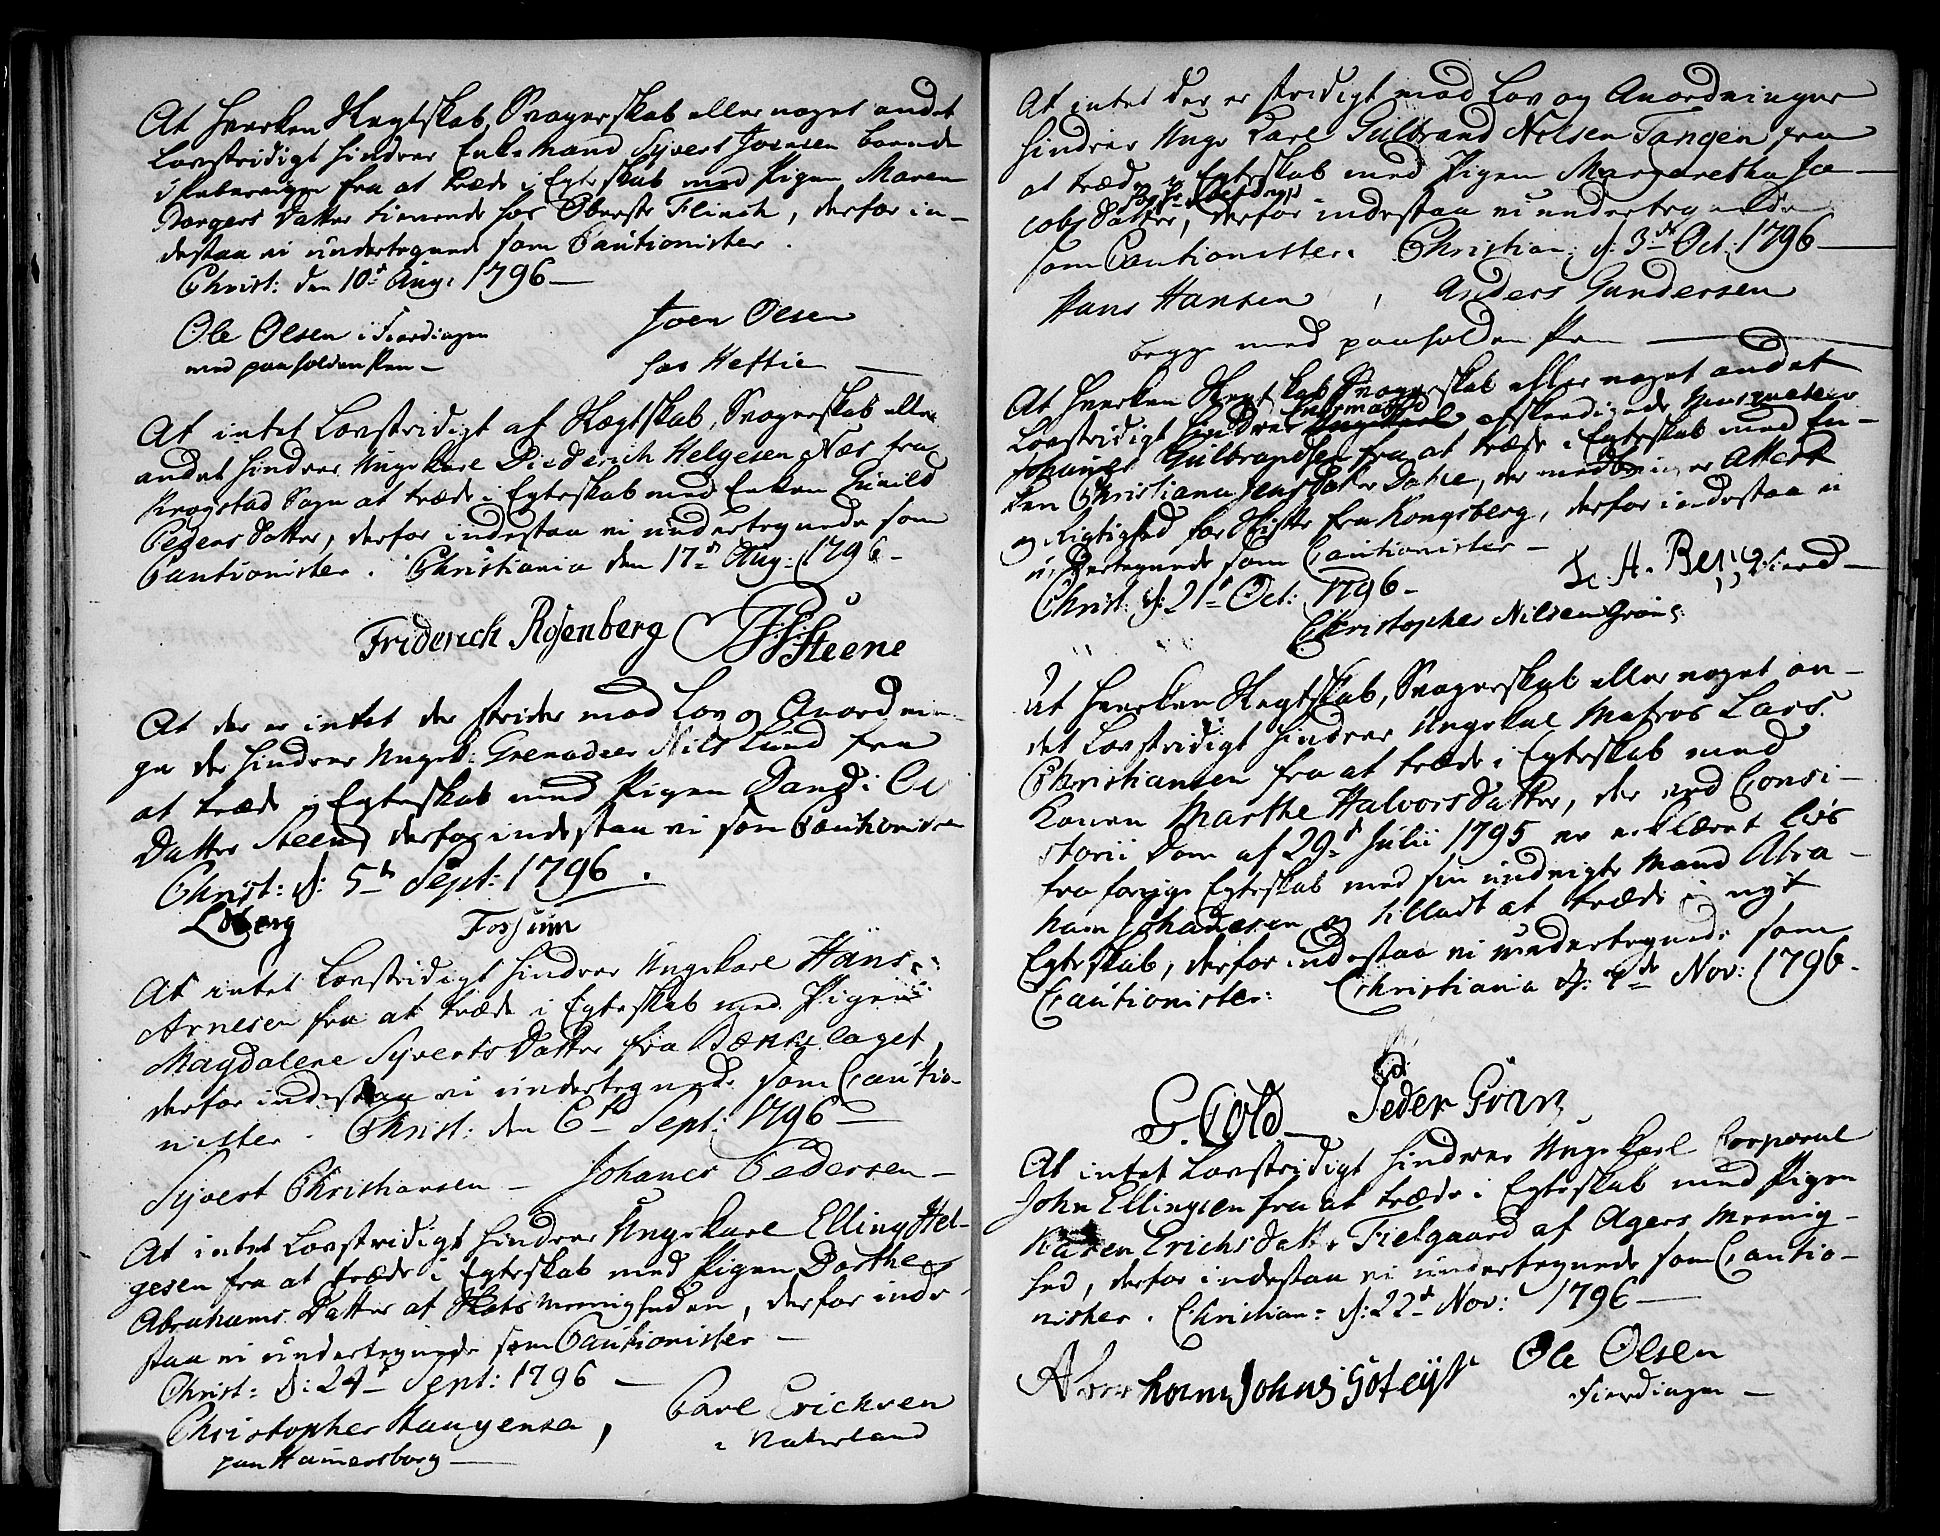 At hverken Slegtskab, Svogerskab eller noget andet
Lovstridigt hindrer Enkemand Syvert Joensen boende
i fra at træde i Egteskab med Pigen Maren
Borgers Datter tienende hos Oberste Flinch, derfor in-
destaa vi undertegnede som Cautionister.
Christ: den 10d Aug: 1796
Ole Olsen i Fierdingen
med paaholden Pen
Joen Olsen
hos Heftie
At intet Lovstridigt af Slegtskab, Svogerskab eller
andet hindrer Ungekarl Diderich Helgesen Næs fra
Krogstad Sogn at træde i Egteskab med Enken Gunild
Peders Datter, derfor indestaa vi undertegnede som
Cautionister. Christiania den 17d Aug: 1796
Friderich Rosenberg Steene
At der er intet der strider mod Lov og Anordnin-
ger der hindrer Ungek: Grenadeer Nils Lund fra
at træde i Egteskab med Pigen
Datter Steen, derfor indestaa vi som Cautionister
Christ: d: 5te Sept: 1796.
Fossum
At intet Lovstridigt hindrer Ungekarl Hans
Arnesen fra at træde i Egteskab med Pigen
Magdalene Syverts Datter fra Bækkelaget,
derfor indestaa vi undertegnede som Cautio-
nister. Christ: den 6te Sept: 1796
Syvert Christiansen Johanes Pedersen
At intet Lovstridigt hindrer Ungekarl Elling Hel-
gesen fra at træde i Egteskab med Pigen Dorthe
Abrahams Datter af Slots Menigheden, derfor inde-
staa vi undertegnede som Cautionister
Christ: d: 24d Sept: 1796
Christopher Haugensen,
paa Hamersborg
Carl Erichsen
i Vaterland
At intet der er stridigt mod Lov og Anordninger
hindrer Unge Karl Gulbrand Nilsen Tangen fra
at træde i Egteskab med Pigen Margaretha Ja-
cobs Datter, derfor indestaa vi undertegnede
som Cautionister. Christian: d: 3de Oct: 1796
Hans Hansen, Anders Gundersen
begge med paaholden Pen
At hverken Slegtskab Svogerskab eller noget andet
Lovstridigt hindrer Enkemand afskedigede Musqueteer
Johannes Gulbrandsen fra at træde i Egteskab med En-
ken Christiana Jens Datter Dahle, der medbringer Attest
og Rigtighed for Skifte fra Kongsberg, derfor indestaa vi
undertegnede som Cautionister
Christ: d: 21d Oct: 1796.
Christopher Nilsen Grøns:
At hverken Slegtskab, Svogerskab eller noget an-
det Lovstridigt hindrer Ungekarl Matros Lars
Christiansen fra at træde i Egteskab med
Konen Marthe Halvors Datter, der ved Consi-
storii Dom af 29d Julii 1795 er erklæret løs
fra forrige Egteskab med sin undvigte Mand Abra-
ham Johannesen og tilladt at træde i nyt
Egteskab, derfor indestaa vi undertegnede som
Cautionister: Christiania d: Nov: 1796.
Peder
At intet Lovstridigt hindrer Ungekarl Corporal
John Ellingsen fra at træde i Egteskab med Pigen
Karen Erichs Datter Fielgaard af Agers Menig-
hed, derfor indestaa vi undertegnede som Cautio-
nister. Christian: d: 22d Nov: 1796
Ole Olsen
Fierdingen